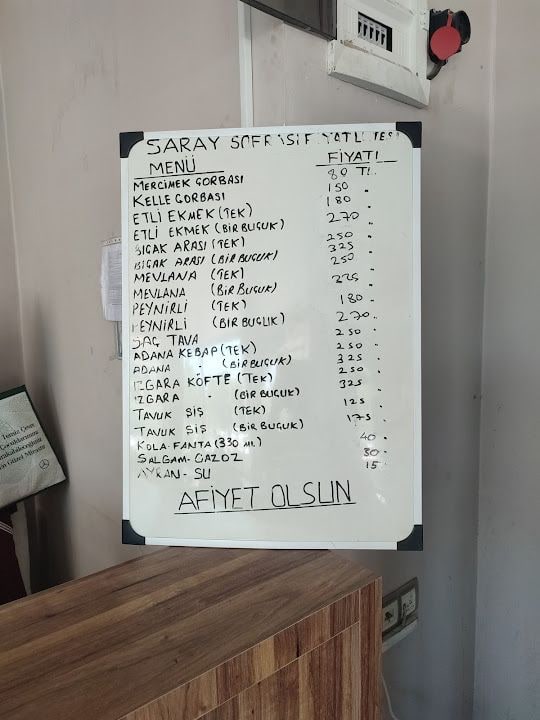 SARAY SOFRASI FİYAT LİSTESİ
MENÜ FİYATI
MERCIMEK ÇORBASI 80 TL.
KELLE ÇORBASI 150 "
ETLİ EKMEK (TEK) 180 "
ETLİ EKMEK (BİR BUÇUK) 270 "
BIÇAK ARASI (TEK) 250 "
BIÇAK ARASI (BİR BUÇUK) 325 "
MEVLANA (TEK) 250 "
MEVLANA (BİR BUÇUK) 325 "
PEYNİRLİ (TEK) 180 "
PEYNİRLİ (BİR BUÇUK) 270 "
SAÇ TAVA 250 "
ADANA KEBAP (TEK) 250 "
ADANA " (BİR BUÇUK) 325 "
IZGARA KÖFTE (TEK) 250 "
IZGARA " (BİR BUÇUK) 325 "
TAVUK ŞİŞ (TEK) 125 "
TAVUK ŞİŞ (BİR BUÇUK) 175 "
KOLA-FANTA (330 ml.) 40 "
ŞALGAM-GAZOZ 30 "
AYRAN-SU 15 "
AFİYET OLSUN
Temiz Çevre
Güzel Mirastır